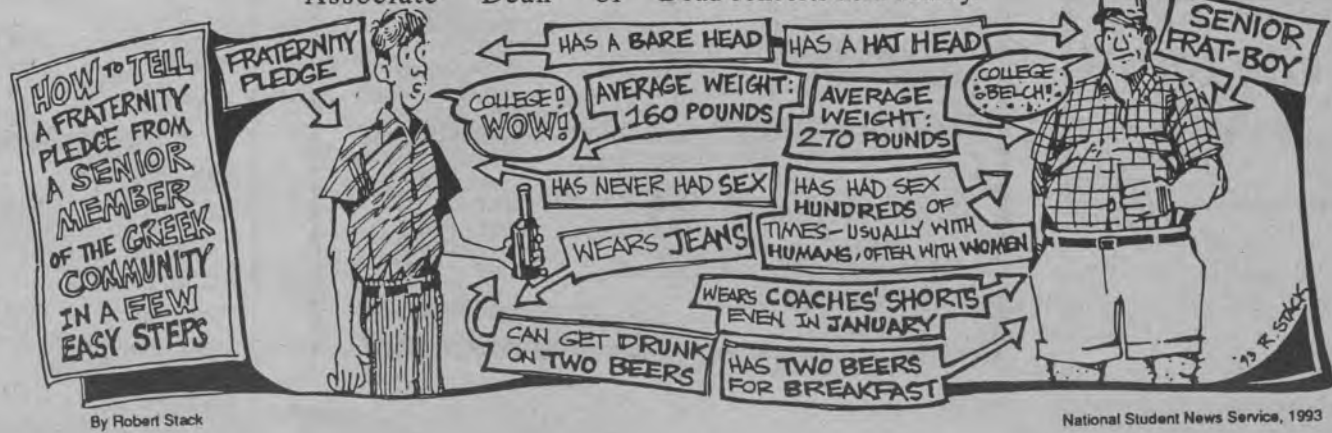 Associate Dean of
HOW TO TELL
A FRATERNITY
PLEDGE FROM
A SENIOR
MEMBER
OF THE GREEK
COMMUNITY
IN A FEW
EASY STEPS
FRATERNITY
PLEDGE
COLLEGE!
WOW!
HAS A BARE HEAD
AVERAGE WEIGHT:
160 POUNDS
HAS NEVER HAD SEX
WEARS JEANS
CAN GET DRUNK
ON TWO BEERS
HAS A HAT HEAD
AVERAGE
WEIGHT:
270 POUNDS
HAS HAD SEX
HUNDREDS OF
TIMES-USUALLY WITH
HUMANS, OFTEN WITH WOMEN
WEARS COACHES' SHORTS
EVEN IN JANUARY
HAS TWO BEERS
FOR BREAKFAST
COLLEGE
BELCH!
SENIOR
FRAT-BOY
'93 R. STACK
By Robert Stack
National Student News Service, 1993